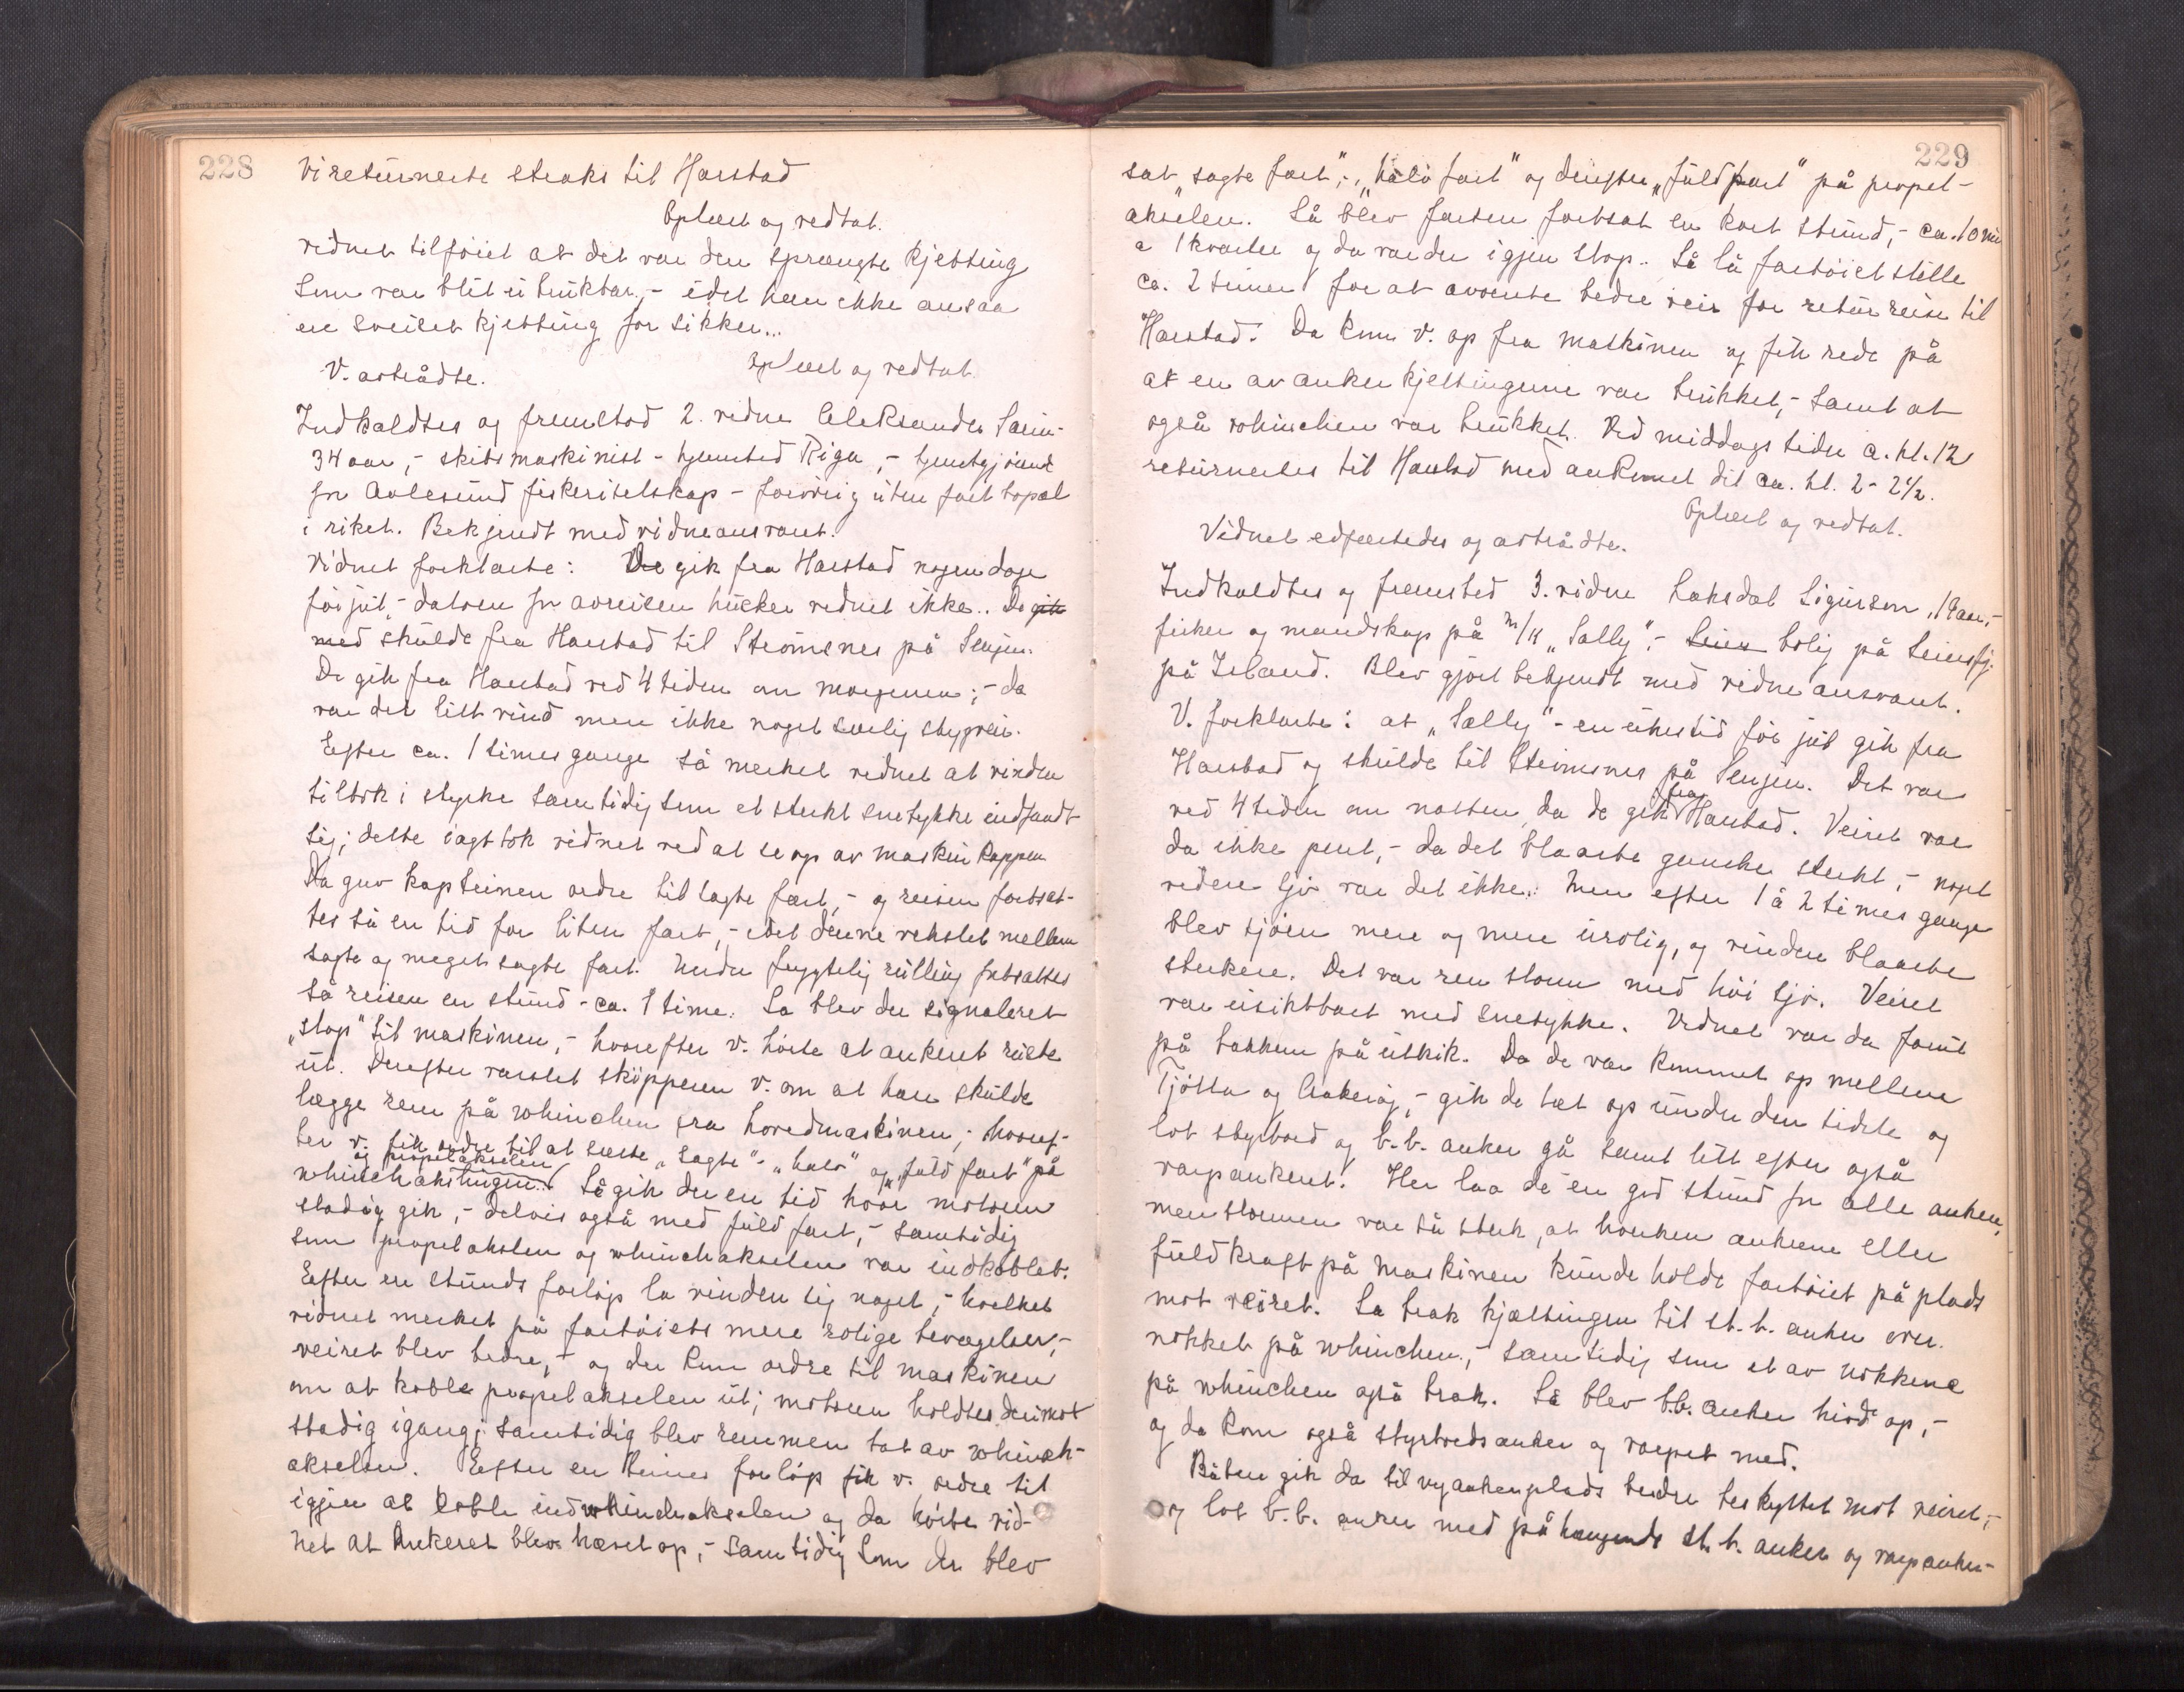 228
Vi returnerte straks til Harstad
Oplæst og vedtat.
Vidnet tilføiet at det var den sprængte kjetting
som var blit ubrukbar, - idet han ikke ansaa
en sveiset kjetting for sikker...
Oplæst og vedtat.
V. aftrådte.
Indkaldtes og fremstod 2. vidne Aleksander
34 aar, - skibsmaskinist - hjemsted Riga, - hjemstgjørende
for Aalesund fiskeriselskap - forøvrig uten fast bopæl
i riket. Bekjendt med vidneansvaret.
Vidnet forklarte: De gik fra Harstad nogen dage
før jul, - datoen for avreisen husker vidnet ikke.. De gik
med skulde fra Harstad til Strømsnes på Senjen.
De gik fra Harstad ved 4 tiden om morgenen; - da
var det litt vind men ikke noget særlig stygveir.
Efter ca. 1 times gange så merket vidnet at vinden
tiltok i styrke samtidig som et sterkt snetykke indfandt
sig; dette iagttok vidnet ved at se op av maskinkappen
Da gav kapteinen ordre til sagte fart, - og reisen fortsat-
tes så en tid for liten fart, - idet denne vekslet mellem
sagte og meget sagte fart. Under frygtelig rulling fortsattes
så reisen en stund - ca. 1 time. Så blev der signaleret
„stop" til maskinen, - hvorefter v. hørte at ankeret ruste
ut. Derefter varslet skipperen v. om at han skulde
lægge rem på whinchen fra hovedmaskinen; - hvoref-
ter v. fik ordre til at sætte „sagte" - „halv" og „fuld fart" på
og propelakselen
whinchakslingen. Så gik der en tid hvor motoren
stadig gik, - delvis også med fuld fart, - samtidig
som propelakslen og whinchakselen var indkoblet.
Efter en stunds forløp la vinden sig noget, - hvilket
vidnet merket på fartøiets mere rolige bevægelser, -
veiret blev bedre, - og der kom ordre til maskinen
om at koble propelakselen ut; motoren holdtes derimot
stadig igang; samtidig blev remmen tat av whinch-
akselen. Efter en times forløp fik v. ordre til
igjen at koble ind whinchakselen og da hørte vid-
net at ankeret blev hævet op, - samtidig som der blev
229
sat „sagte fart", - „halv fart" og derefter „fuld fart" på propel-
akselen. Så blev farten fortsat en kort stund, - ca. 10 min
a 1 kvarter og da var der igjen stop. Så lå fartøiet stille
ca. 2 timer for at avvente bedre veir for returreise til
Harstad. Da kom v. op fra maskinen og fik rede på
at en av ankerkjettingerne var brukket, - samt at
også whinchen var brukket. Ved middagstider a. kl. 12
returnertes til Harstad med ankomst dit ca. kl. 2 - 2½.
Oplæst og vedtat.
Vidnet edfæstedes og aftrådte.
Indkaldtes og fremsted 3. vidne Laksdal Sigurson, 19 aar, -
fisker og mandskap på M/K „Sally", - bolig på
på Island. Blev gjort bekjendt med vidneansvaret.
V. forklarte: at „Sally" - en ukestid før jul gik fra
Harstad og skulde til Strømsnes på Senjen. Det var
ved 4 tiden om natten da de gik fra Harstad. Veiret var
da ikke pent, - da det blaaste ganske sterkt, - noget
videre sjø var det ikke. Men efter 1 à 2 times gange
blev sjøen mere og mere urolig, og vinden blaaste
sterkere. Det var ren storm med høi sjø. Veiret
var usiktbart med snetykke. Vidnet var da forut
på bakken på utkik. Da de var kommet op mellem
Tjøtta og - gik de tæt op under den sidste og
lot styrbord og b.b. anker gå samt litt efter også
varpankeret. Her laa de en god stund for alle ankere,
men stormen var så sterk, at hverken ankerne eller
fuldkraft på maskinen kunde holde fartøiet på plads
mot veiret. Så brak kjættingen til st.b. anker over
nokket på whinchen, - samtidig som et av nokkene
på whinchen også brak. Så blev b.b. anker hivd op, -
og da kom også styrbordsanker og varpet med.
Båten gik da til ny ankerplads bedre beskyttet mot veiret, -
og lot b.b. anker med påhængende st.b. anker og varpanker-